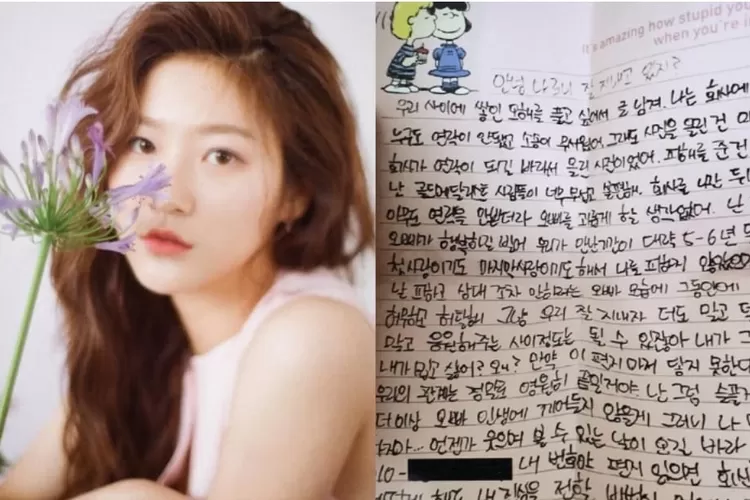 It's amazing how stupid you
when you're i
안녕 나
우리 사이에 쌓인 오해를 풀고 싶어서 글 남겨. 나는 회사에
누구도 연락이 안됐고 소송이 무서웠어. 그래도 사진을 올린 건
회사가 연락이 되길 바라서 올린 사진이었어. 피해를 준건
난 골드메달리스트 사람들이 너무 무섭고 불편해. 회사를 나간
아무도 연락을 안받더라 오빠를 괴롭게 할 생각없어. 난
오빠가 행복하길 빌어 우리가 만난기간이 대략 5-6년
첫사랑이기도 마지막사랑이기도 해서 나를 피하지 않았으면
날 피하고 상대 조차 안하려는 오빠 모습에 그동안에
허무하고 허탈해 그냥 우리 잘 지내자 더도 말고
말고 응원해주는 사이정도는 될 수 있잖아 내가 그
내가 밉고 싫어? 왜? 만약 이 편지마저 닿지 못한다
우리의 관계는 정말로 영원히 끝일거야. 난 그럼 슬플거
더이상 오빠 인생에 끼어들지 않을게 그러니 나
하지마... 언젠가 웃으며 볼 수 있는 날이 오길 바라
10- 내 번호야 편지 읽으면
내 진심을 전할